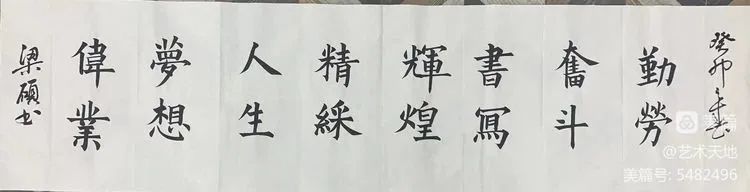 癸卯年
勤勞
奮斗
書冩
輝煌
精綵
人生
夢想
偉業
梁硕书
美篇
@艺术天地
美篇号: 5482496